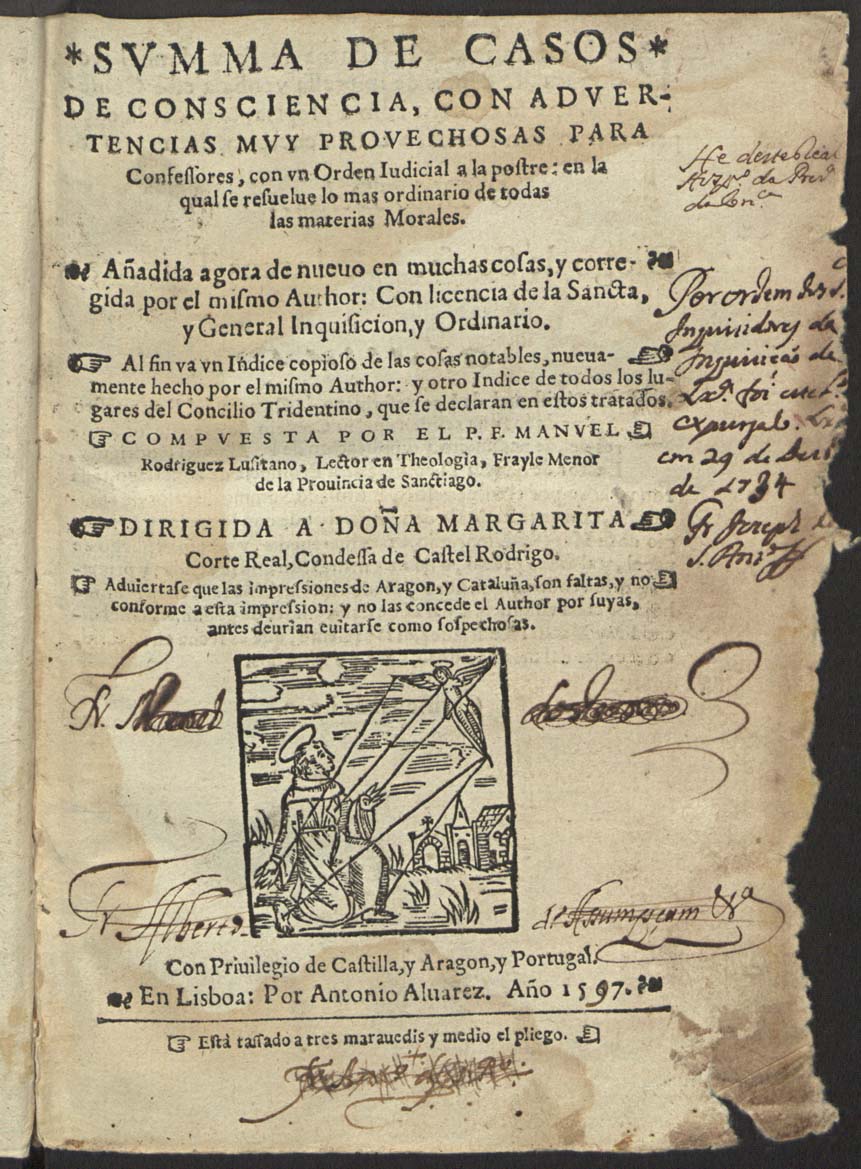 *SVMMA DE CASOS*
DE CONSCIENCIA, CON ADVER-
TENCIAS MVY PROVECHOSAS PARA
Confessores, con vn Orden Iudicial a la postre: en la
qual se resuelue lo mas ordinario de todas
las materias Morales.
Añadida agora de nueuo en muchas cosas, y corre-
gida por el mismo Author: Con licencia de la Sancta,
y General Inquisicion, y Ordinario.
Al fin va vn Indice copioso de las cosas notables, nueua-
mente hecho por el mismo Author: y otro Indice de todos los lu-
gares del Concilio Tridentino, que se declaran en estos tratados.
COMPVESTA POR EL P. F. MANVEL
Rodriguez Lusitano, Lector en Theologia, Frayle Menor
de la Prouincia de Sanctiago.
DIRIGIDA A DOÑA MARGARITA
Corte Real, Condessa de Castel Rodrigo.
Aduiertase que las impressiones de Aragon, y Cataluña, son faltas, y no
conforme a esta impression: y no las concede el Author por suyas,
antes deurian euitarse como sospechosas.
Con Priuilegio de Castilla, y Aragon, y Portugal.
En Lisboa: Por Antonio Aluarez. Año 1597.
Está tassado a tres marauedis y medio el pliego.
He deste
da
Por ordem dos S.
Inquisidores da
Inquisicaõ de
foi este
expurgado
em 29 de
de 1734
Fr Joseph de
S.
Fr. Manoel
Fr Alberto
de Assumpçam